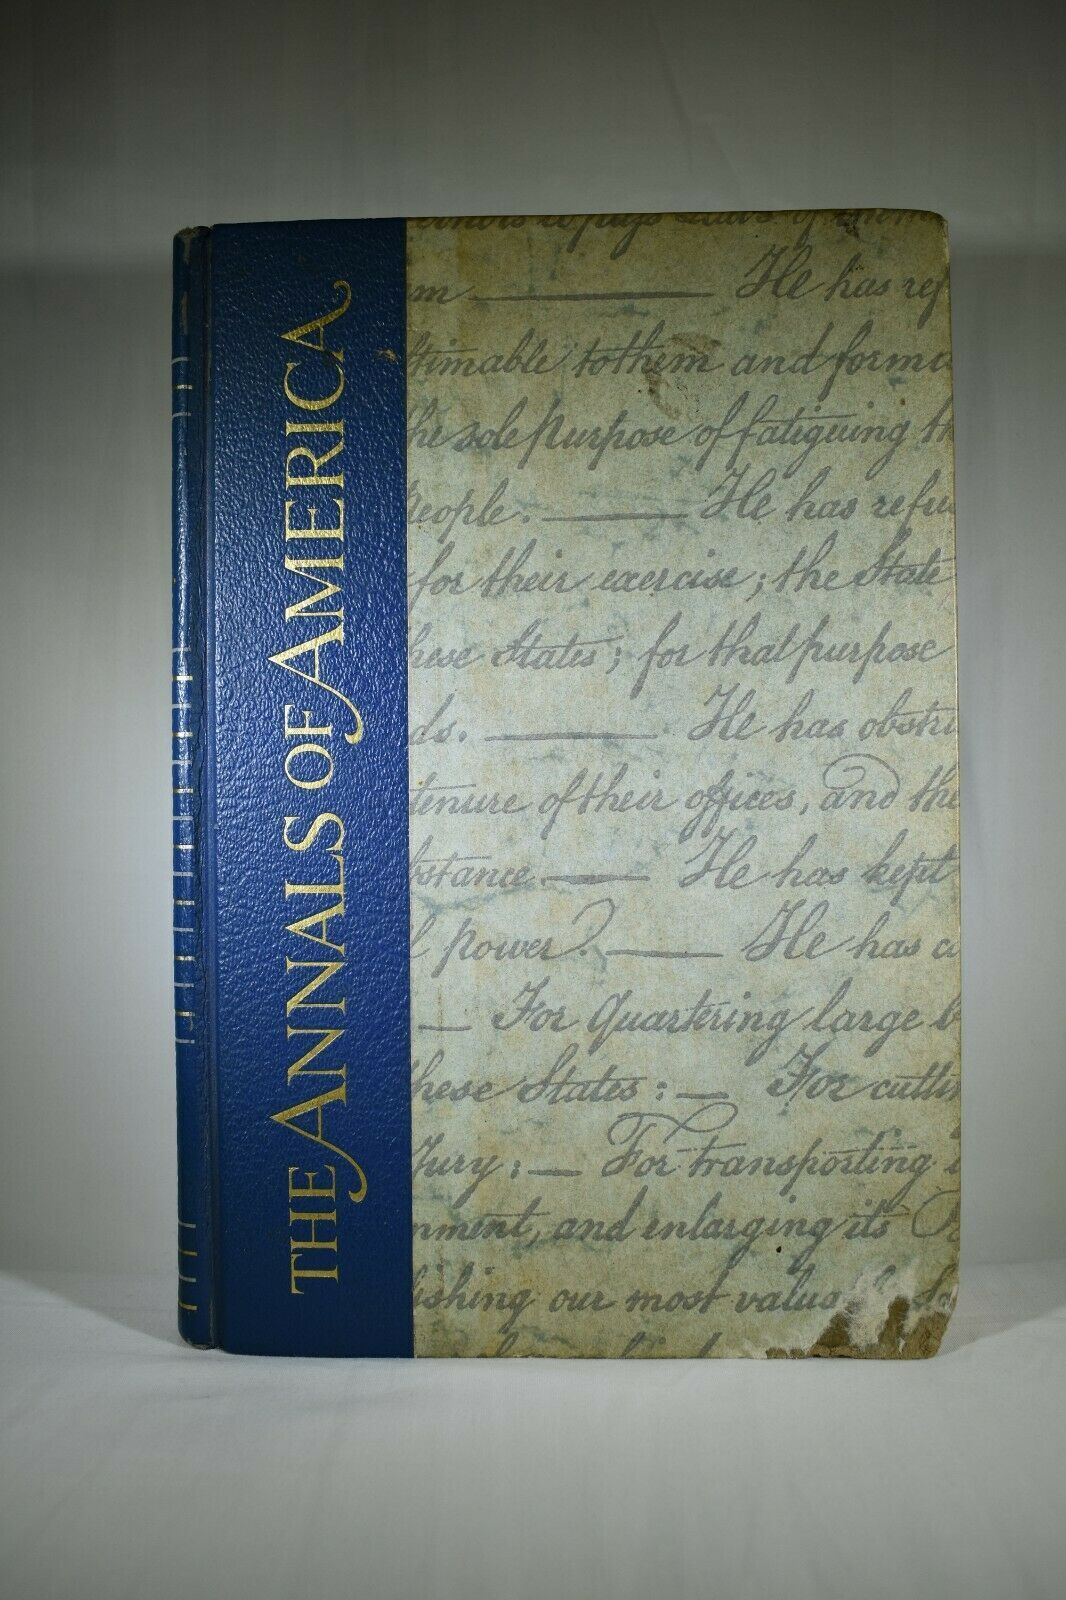 THE ANNALS OF AMERICA
He has
and formi
the sole purpose of fatiguing th
people. He has refu
for their exercise; the State
these States; for that purpose
ds. He has obstru
tenure of their offices, and the
bstance. He has kept
l power? He has
For Quartering large b
these States: — For cutti
Jury: — For transporting
nment, and enlarging its
ishing our most